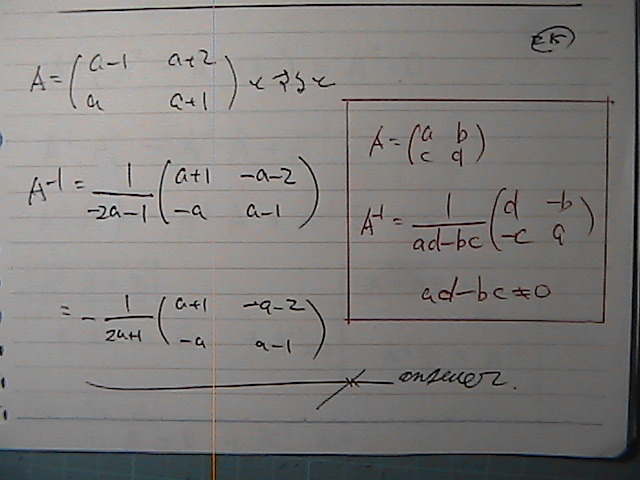 A = (a-1 a+2
a a+1) とすると
A⁻¹ = 1/(-2a-1) (a+1 -a-2
-a a-1)
= - 1/(2a+1) (a+1 -a-2
-a a-1)
answer.
A = (a b
c d)
A⁻¹ = 1/(ad-bc) (d -b
-c a)
ad-bc≠0